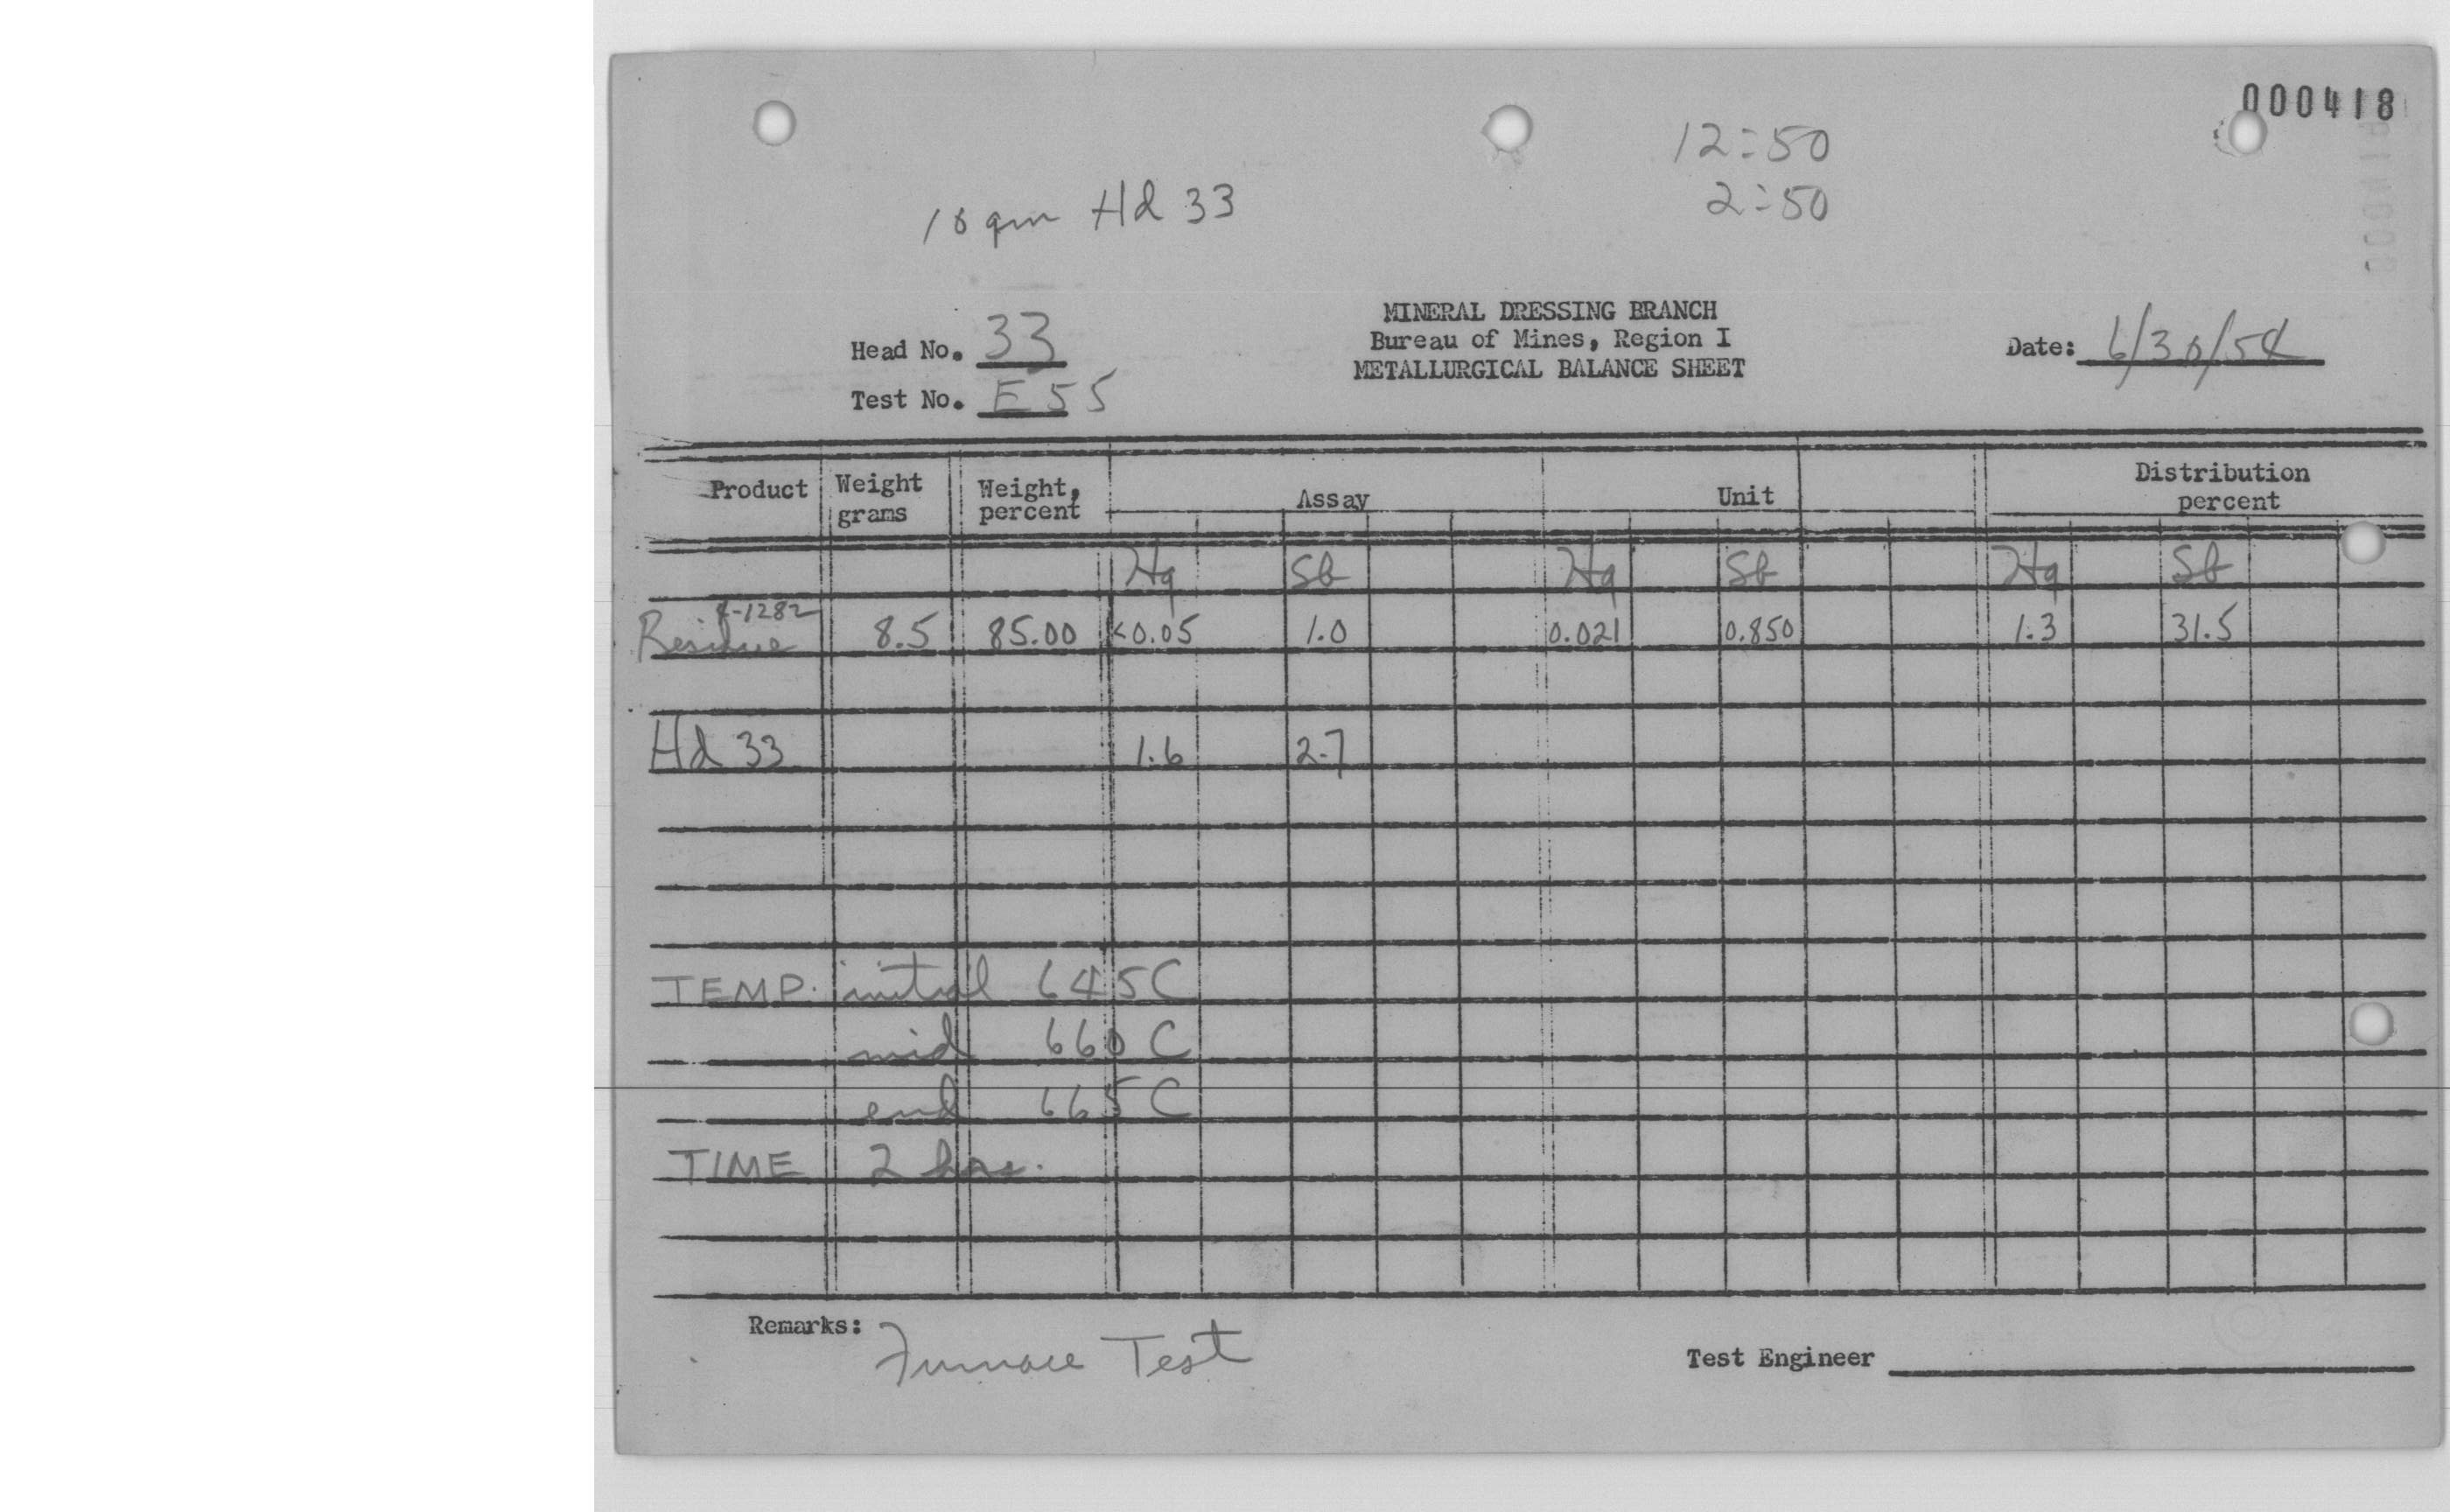 000418
12:50
2:50
10 gm Hd 33
MINERAL DRESSING BRANCH
Bureau of Mines, Region I
METALLURGICAL BALANCE SHEET
Head No. 33
Test No. E55
Date: 6/30/54
Product Weight grams Weight, percent Assay Unit Distribution percent
Hg Sb Hg Sb Hg Sb
4-1282
Residue 8.5 85.00 <0.05 1.0 0.021 0.850 1.3 31.5
Hd 33 1.6 2.7
TEMP. initial 645C
mid 660 C
end 665 C
TIME 2 hrs.
Remarks: Furnace Test
Test Engineer